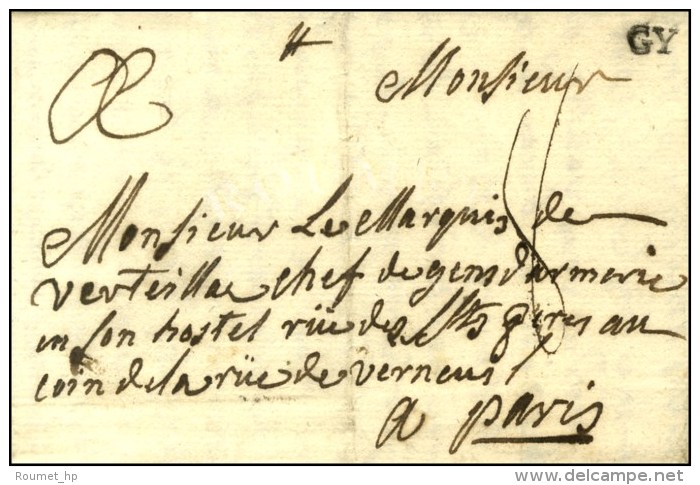 GY
Monsieur
Monsieur Le Marquis de
verteillac chef de gensdarmerie
en son hostel rüe des Sts peres au
coin de la rüe de verneus
a paris
Roumet_hp
www.delcampe.net